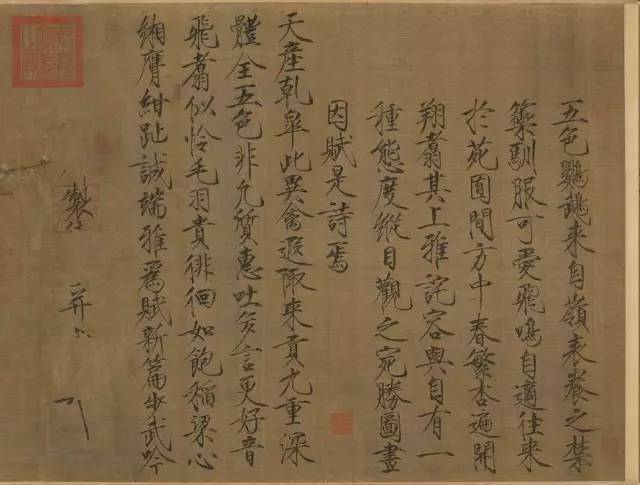 五色鸚鵡来自嶺表養之禁
籞馴服可愛飛鳴自適往来
於苑囿間方中春繁杏遍開
翔翥其上雅詫容與自有一
種態度縱目觀之宛勝圖畫
因賦是詩焉
天産乾皐此異禽遐陬来貢九重深
體全五色非凡質惠吐多言更好音
飛翥似怜毛羽貴徘徊如飽稻粱心
緗膺紺趾誠端雅為賦新篇步武吟
製